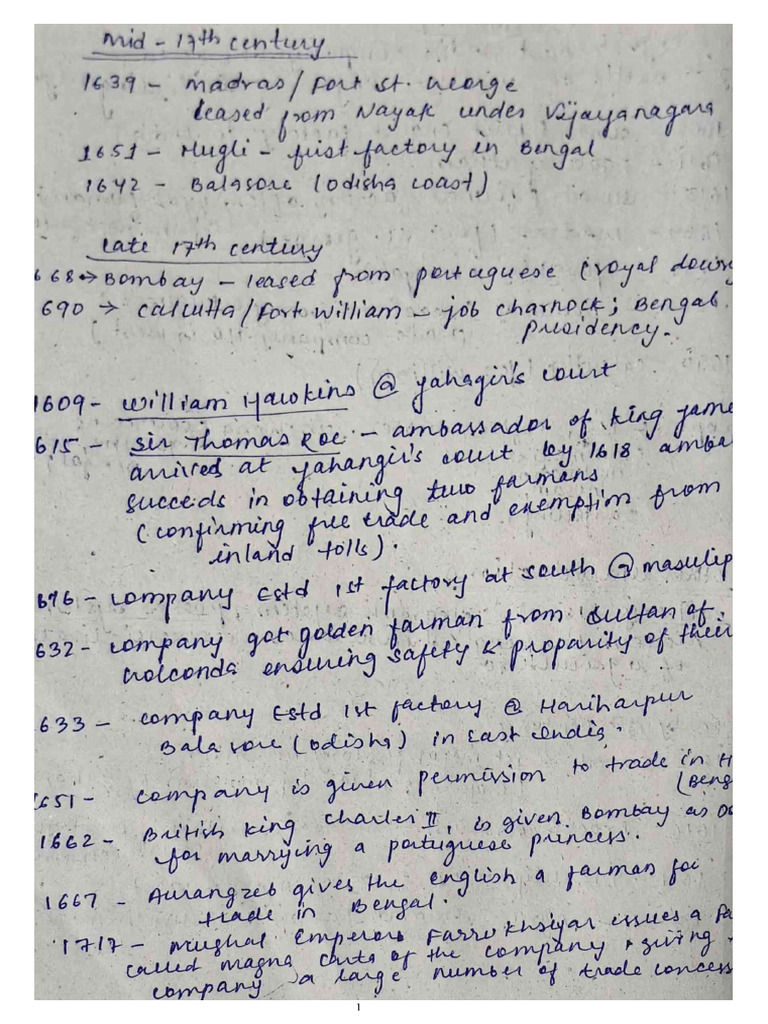 Mid - 17th century
1639 - Madras / Fort St. George
leased from Nayak under Vijayanagara
1651 - Hugli - first factory in Bengal
1642 - Balasore (Odisha coast)
Late 17th century
668 → Bombay - leased from portuguese (royal dowry
690 → Calcutta / Fort William - job charnock; Bengal
Presidency.
1609 - William Hawkins @ Jahagir's court
615 - Sir Thomas Roe - ambassador of King Jame
arrived at Jahangir's court by 1618 amba
succeds in obtaining two farmans
(confirming free trade and exemption from
inland tolls).
company Estd 1st factory at south @ masulip
632 - company got golden farman from Sultan of
Golconda ensuring safety & proparity of their
633 - company Estd 1st factory @ Hariharpur
Balasore (Odisha) in East India.
1651 - company is given permission to trade in H
(Beng
1662 - British king Charles II, is given Bombay as
for marrying a portuguese princess.
1667 - Aurangzeb gives the english a farman for
trade in Bengal.
1717 - Mughal Emperor Farrukhsiyar issues a fa
called magna carta of the company & giving
company a large number of trade concess
1